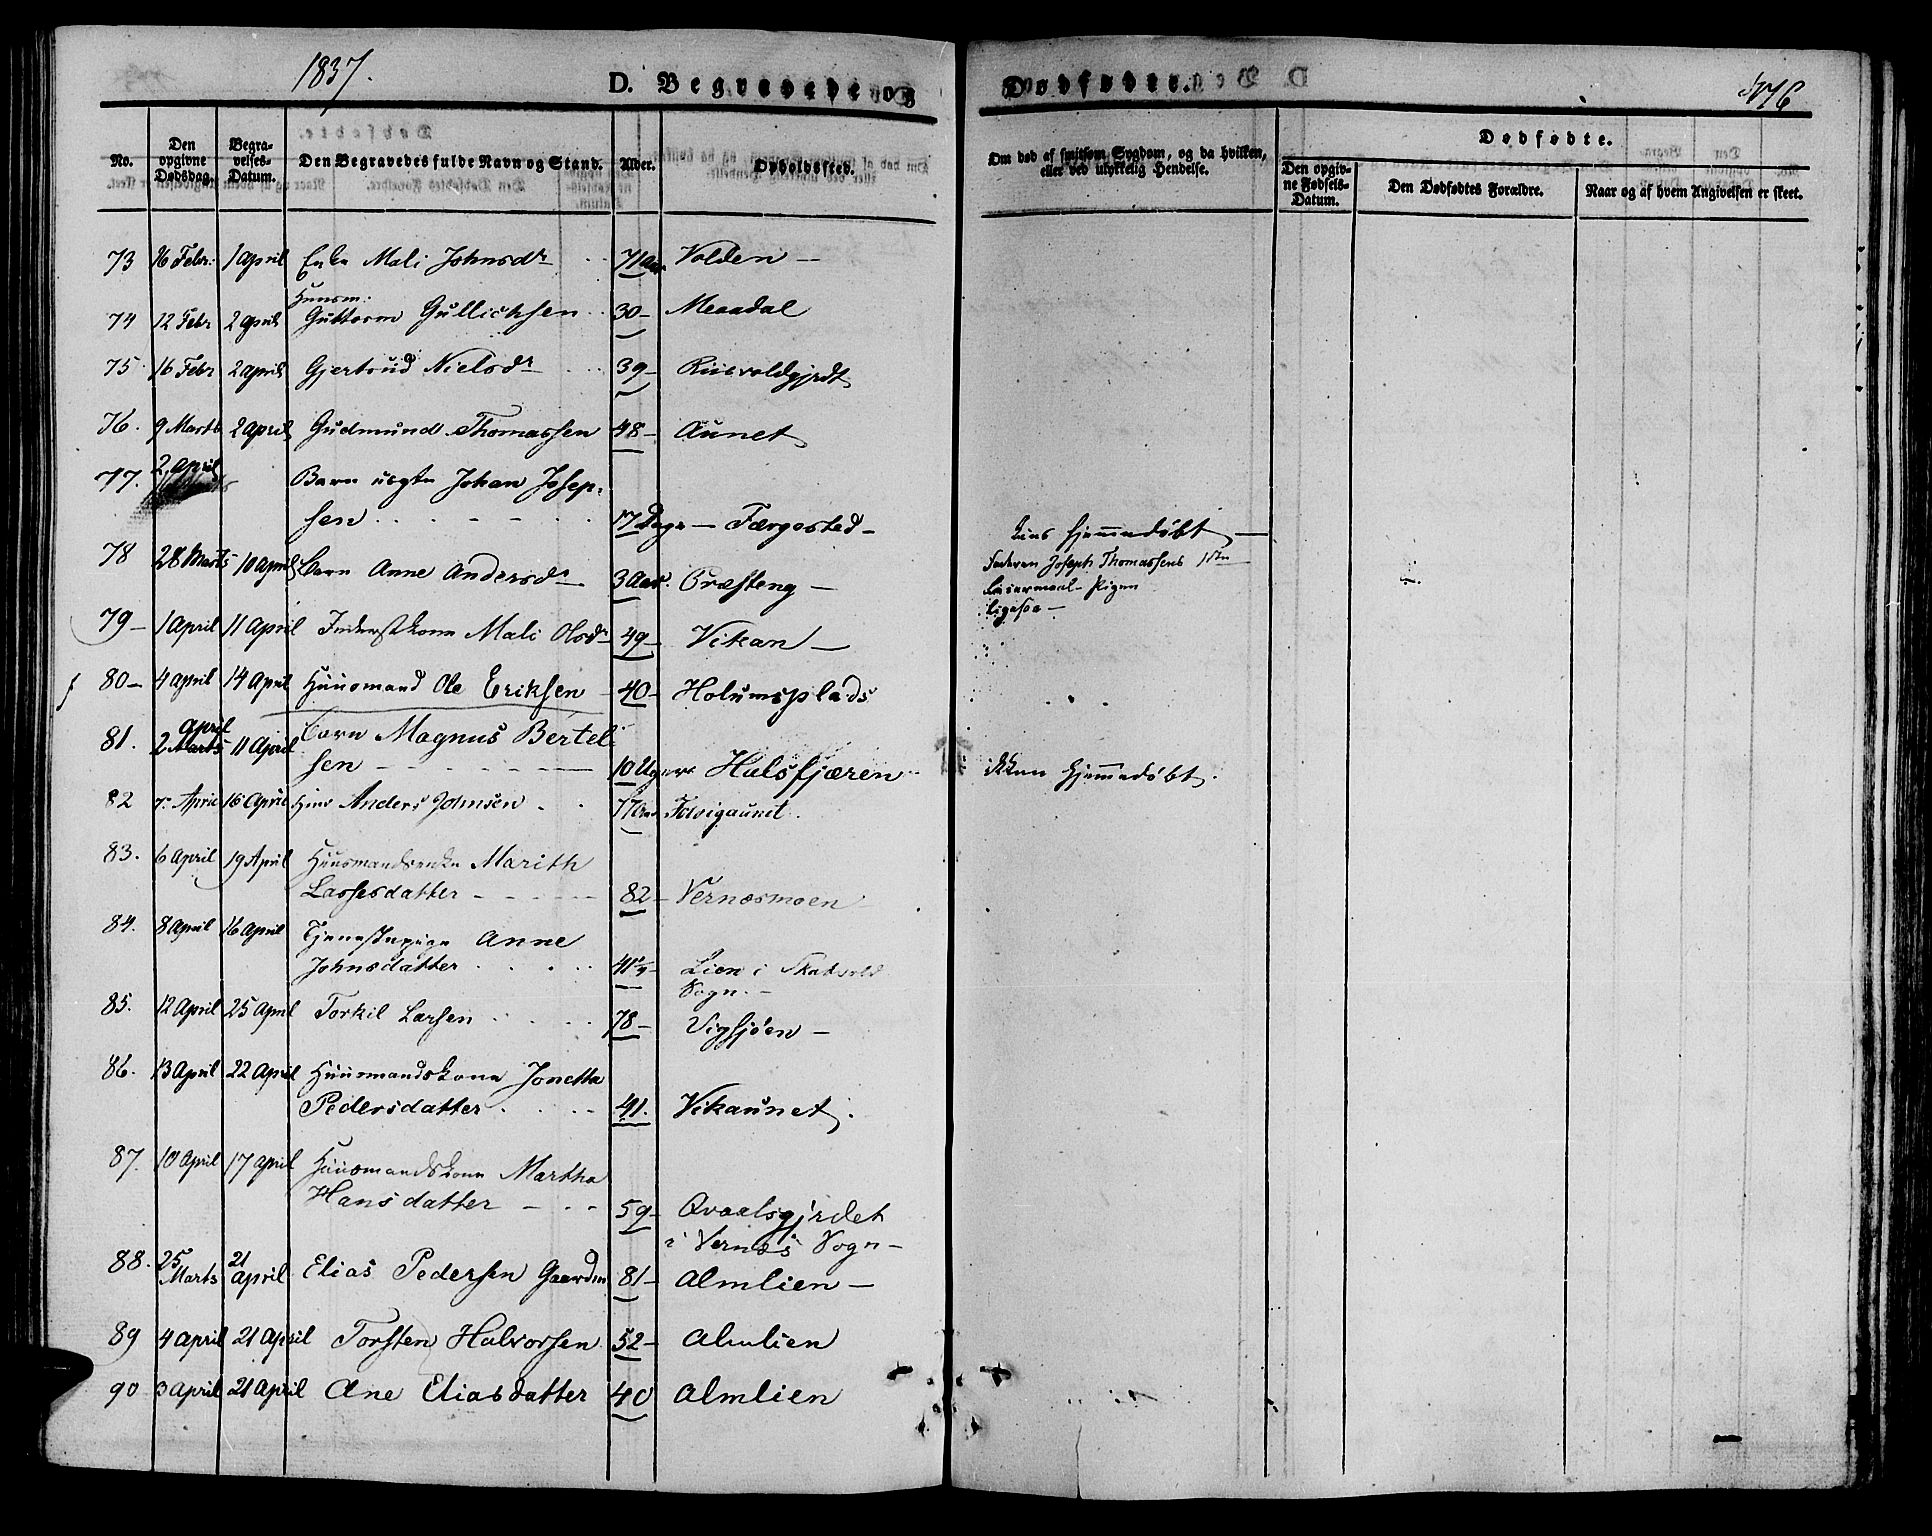 1837.
D. Begravede og
Dødfødte.
No.
Den opgivne Dødsdag.
Begravelses-Datum.
Den Begravedes fulde Navn og Stand.
Alder.
Opholdssted.
Om død af smitsom Sygdom, og da hvilken, eller ved ulykkelig Hendelse.
Dødfødte.
Den opgivne Fødsels-Datum.
Den Dødfødtes Forældre.
Naar og af hvem Angivelsen er skeet.
73 16 Febr: 1 April Enke Mali Johnsdr 71 Aar Volden
74 12 Febr 2 April Huusm: Guttorm Gullichsen 30 Meradal
75 16 Febr 2 April Gjertrud Nielsdr 39
76. 9 Marts 2 April Gudmund Thomassen 48 Aunet
77. 2 April Barn uægte Johan Josep-
sen 17 Dage Færgested
Hjemmedøbt
Faderen Joseph Thomassens 1ste
Leiermaal Pigen
78 28 Marts 10 April Barn Anne Andersdr 3 Aar. Præsteng
79 1 April 11 April Inderstkone Mali Olsdr 49 Vikan
80 4 April 14 April Huusmand Ole Eriksen 40 Holumsplads
81. 2 April Marts 11 April Barn Magnus Bertel-
sen 10 Uger Halsfjæren ikke Hjemmedøbt.
82 April 16 April Anders Johnsen 77 Aar Forvigaunet.
83. 6 April 19 April Huusmandsenke Marith
Lassesdatter 82 Vernæsmoen
84. 8 April 16 April Tjenestepige Anne
Johnsdatter 41 Lien i Skatvold
Sogn.
85. 12 April 25 April Torkil Larsen 78 Vigsjøen
86. 13 April 22 April Huusmandskone Jonetta
Pedersdatter 41. Vikaunet.
87. 10 April 17 April Huusmandskone Martha
Hansdatter 59 Qvaalsgjrdet
i Vernæs Sogn
88. 25 Marts 21 April Elias Pedersen Gaardm 81 Almlien
89 4 April 21 April Torsten Halvorsen 52 Almlien
90 3 April 21 April Ane Eliasdatter 40 Almlien